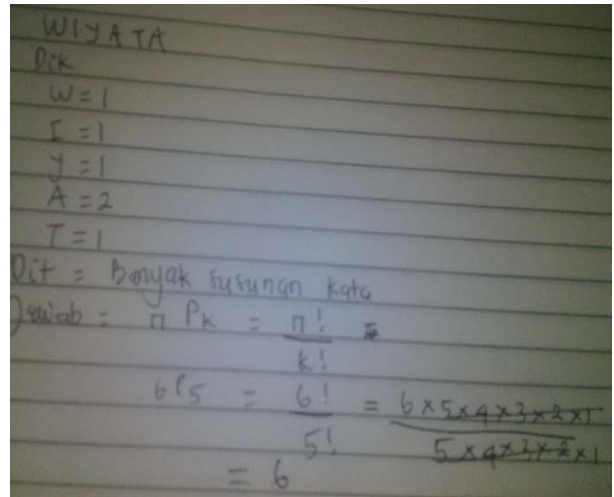 WIYATA
Dik
W = 1
I = 1
y = 1
A = 2
T = 1
Dit = Banyak susunan kata
Jawab = n Pk = n! =
k!
6P5 = 6! = 6 x 5 x 4 x 3 x 2 x 1
5! 5 x 4 x 3 x 2 x 1
= 6